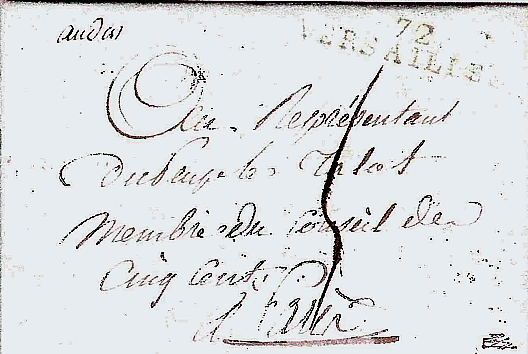 72
VERSAILLES
Au Représentant
du peuple Talot
Membre du Conseil des
Cinq Cents
à Paris
5